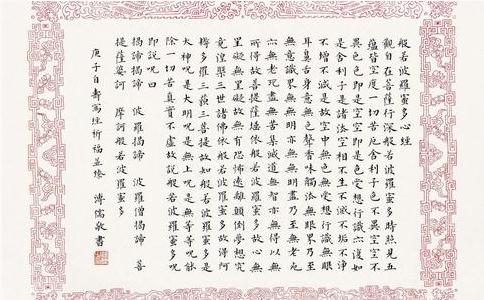 般若波羅蜜多心經
觀自在菩薩行深般若波羅蜜多時照見五
蘊皆空度一切苦厄舍利子色不異空空不
異色色即是空空即是色受想行識亦復如
是舍利子是諸法空相不生不滅不垢不淨
不增不減是故空中無色無受想行識無眼
耳鼻舌身意無色聲香味觸法無眼界乃至
無意識界無無明亦無無明盡乃至無老死
亦無老死盡無苦集滅道無智亦無得以無
所得故菩提薩埵依般若波羅蜜多故心無
罣礙無罣礙故無有恐怖遠離顛倒夢想究
竟涅槃三世諸佛依般若波羅蜜多故得阿
耨多羅三藐三菩提故知般若波羅蜜多是
大神呪是大明呪是無上呪是無等等呪能
除一切苦真實不虛故說般若波羅蜜多呪
即說呪曰
揭諦揭諦 波羅揭諦 波羅僧揭諦 菩
提薩婆訶 摩訶般若波羅蜜多
庚子自壽寫經祈福 溥儒敬書